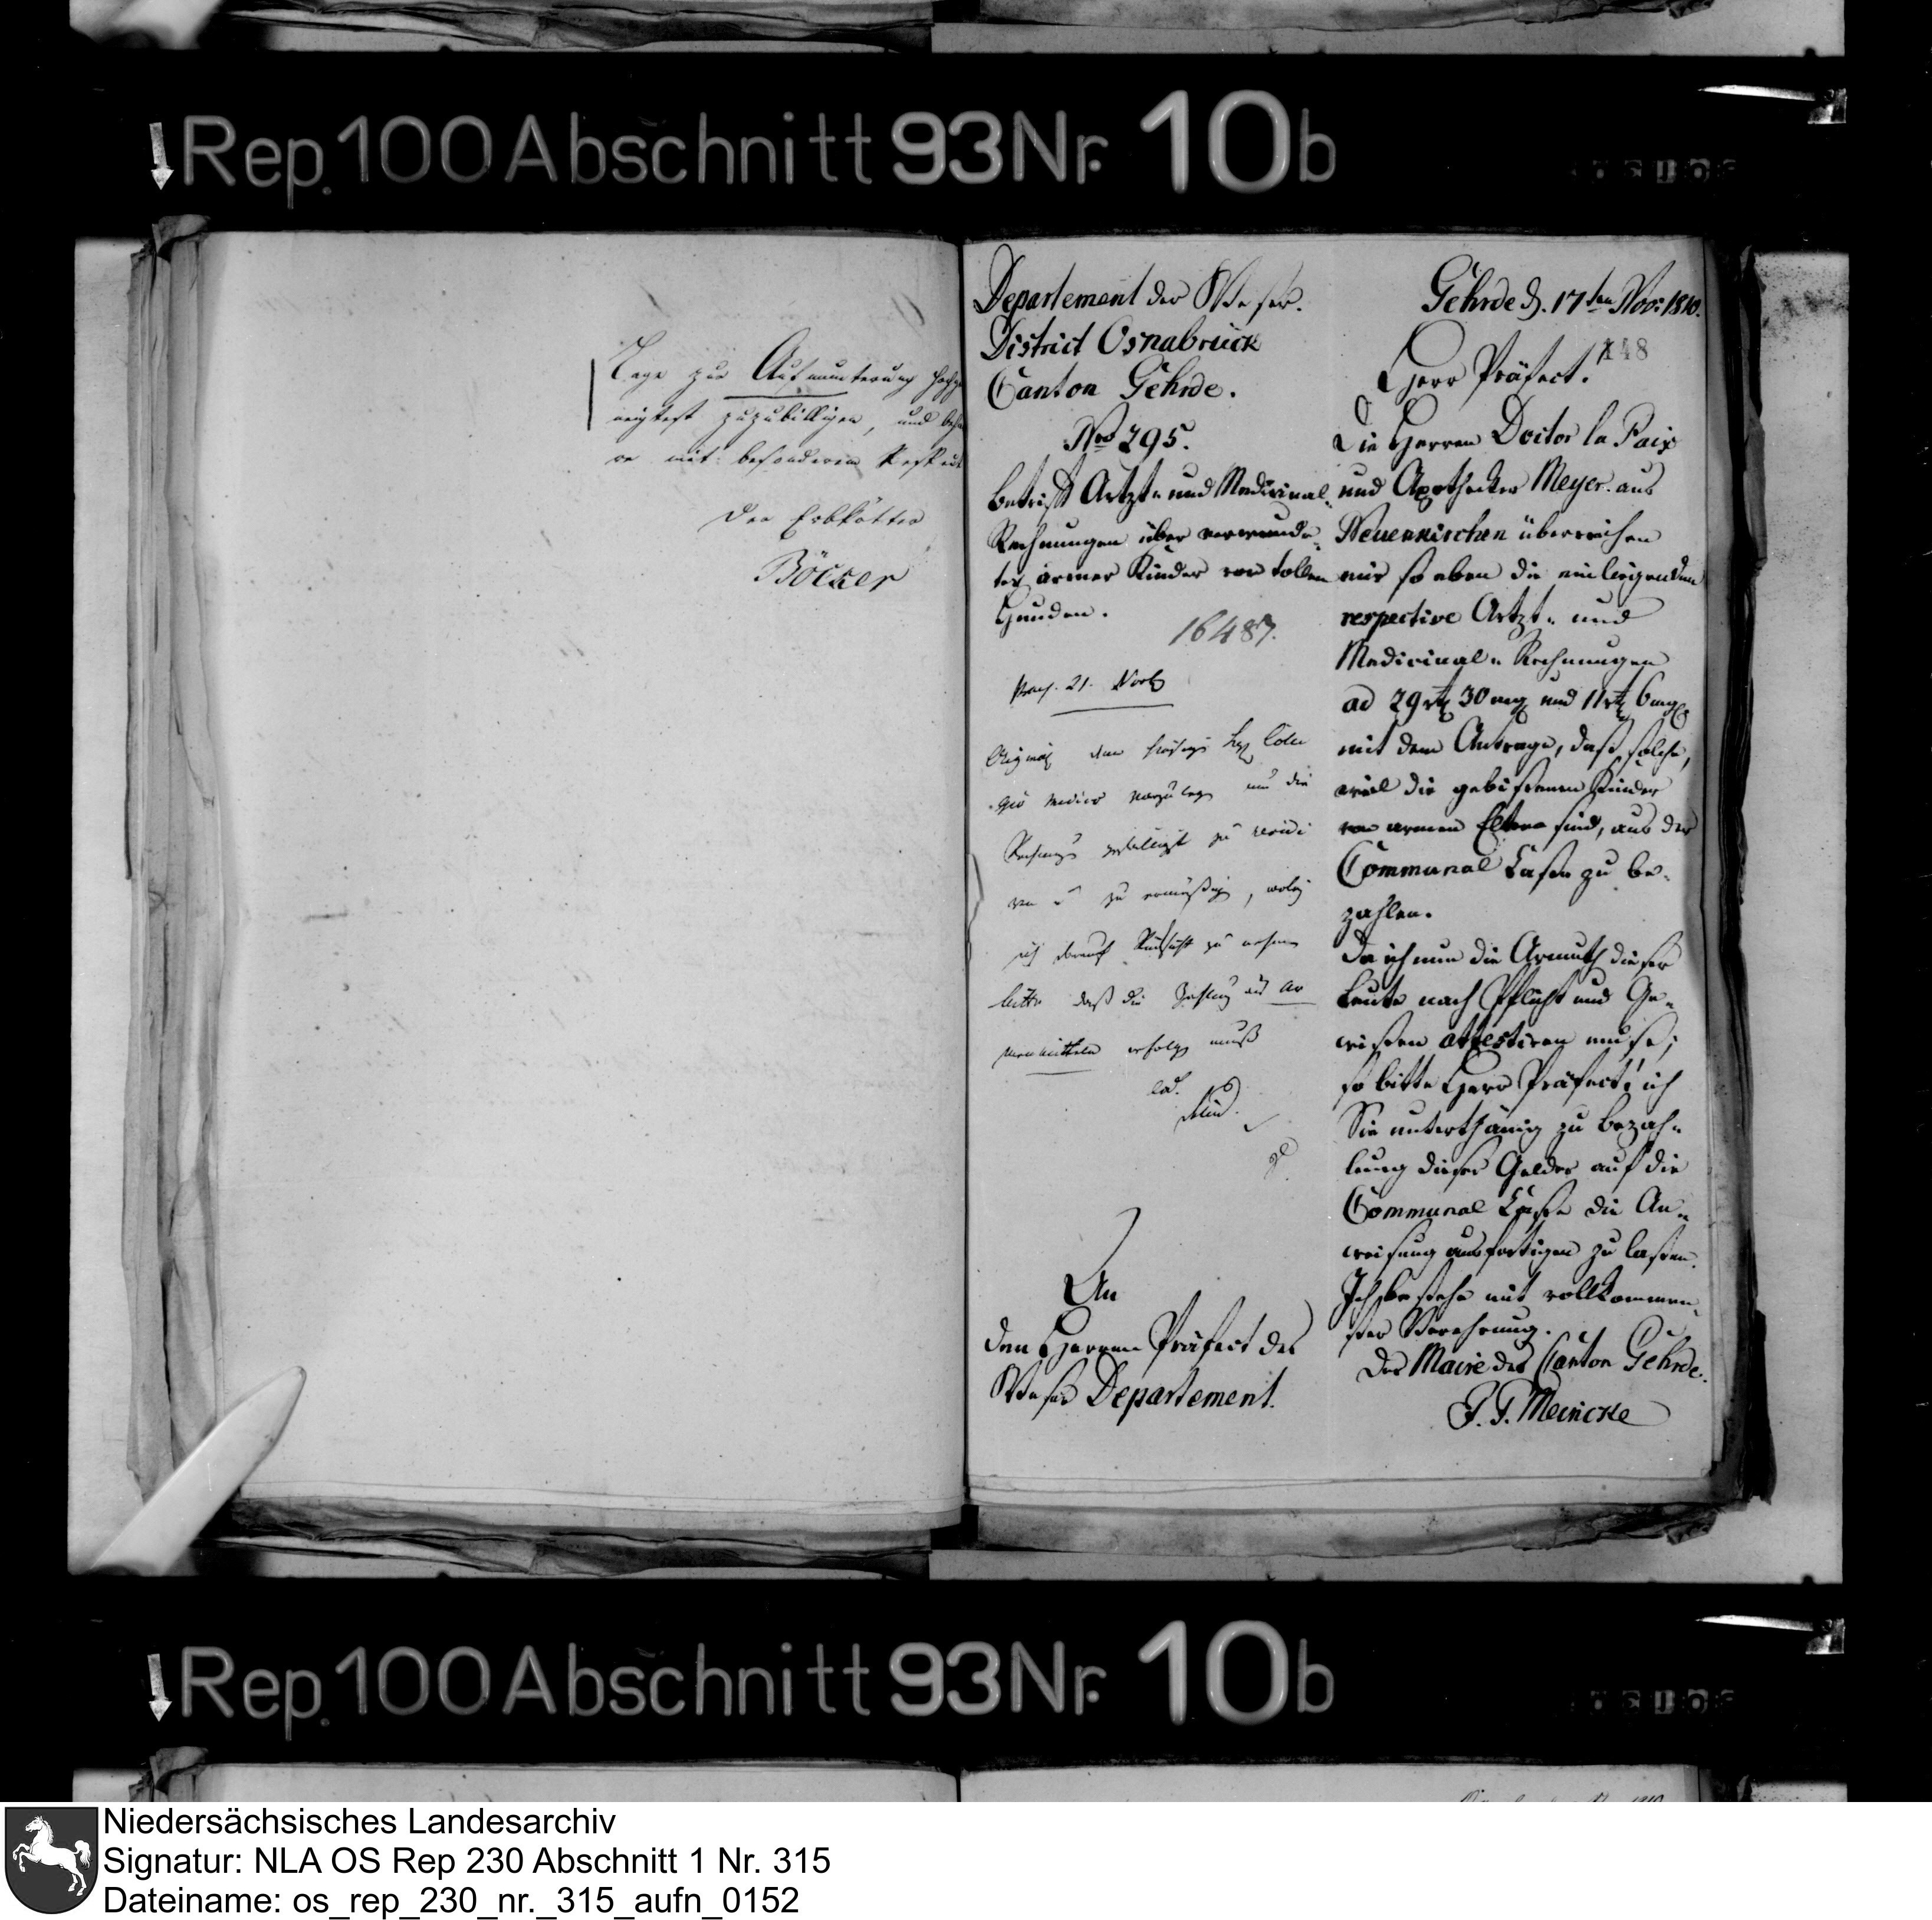 Rep. 100 Abschnitt 93 Nr. 10b
Tage zur Aufmunterung hochge
neigtest zuzubilligen, und beha
re mit besonderem Respect
Der Erbkötter
Böcker
Departement der Weser.
District Osnabrück
Canton Gehrde.
Nro 295.
Betrifft Artzt- und Medicinal-
Rechnungen über verwunde-
ter armer Kinder von tollen
Hunden.
16487.
Praes. 21. Novb
vorzulegen um die
zu revidi
ren u zu ermäßigen, wobey
ich darauf Rücksicht zu nehmen
bitte daß die Zahlung aus Ar
menmitteln erfolgen muß
An
den Herren Präfect des
Weser Departement.
Gehrde d. 17ten Nov: 1810.
148
Herr Präfect!
Die Herren Doctor la Paix
und Apothecker Meyer aus
Neuenkirchen überreichen
mir so eben die einliegenden
respective Artzt- und
Medicinal-Rechnungen
ad 29 rt 30 mg und 11 rt 6 mg
mit dem Antrage, daß solche,
weil die gebissenen Kinder
von armen Eltern sind, aus der
Communal Casse zu be-
zahlen.
Da ich nun die Armuth dieser
Leute nach Pflicht und Ge-
wissen attestiren muß;
so bitte Herr Präfect! ich
Sie unterthänig zu Bezah-
lung dieser Gelder auf die
Communal Casse die An-
weisung ausfertigen zu lassen.
Ich bestehe mit vollkommen-
ster Verehrung.
Der Maire des Canton Gehrde.
Meincke
Rep. 100 Abschnitt 93 Nr. 10b
Niedersächsisches Landesarchiv
Signatur: NLA OS Rep 230 Abschnitt 1 Nr. 315
Dateiname: os_rep_230_nr._315_aufn_0152